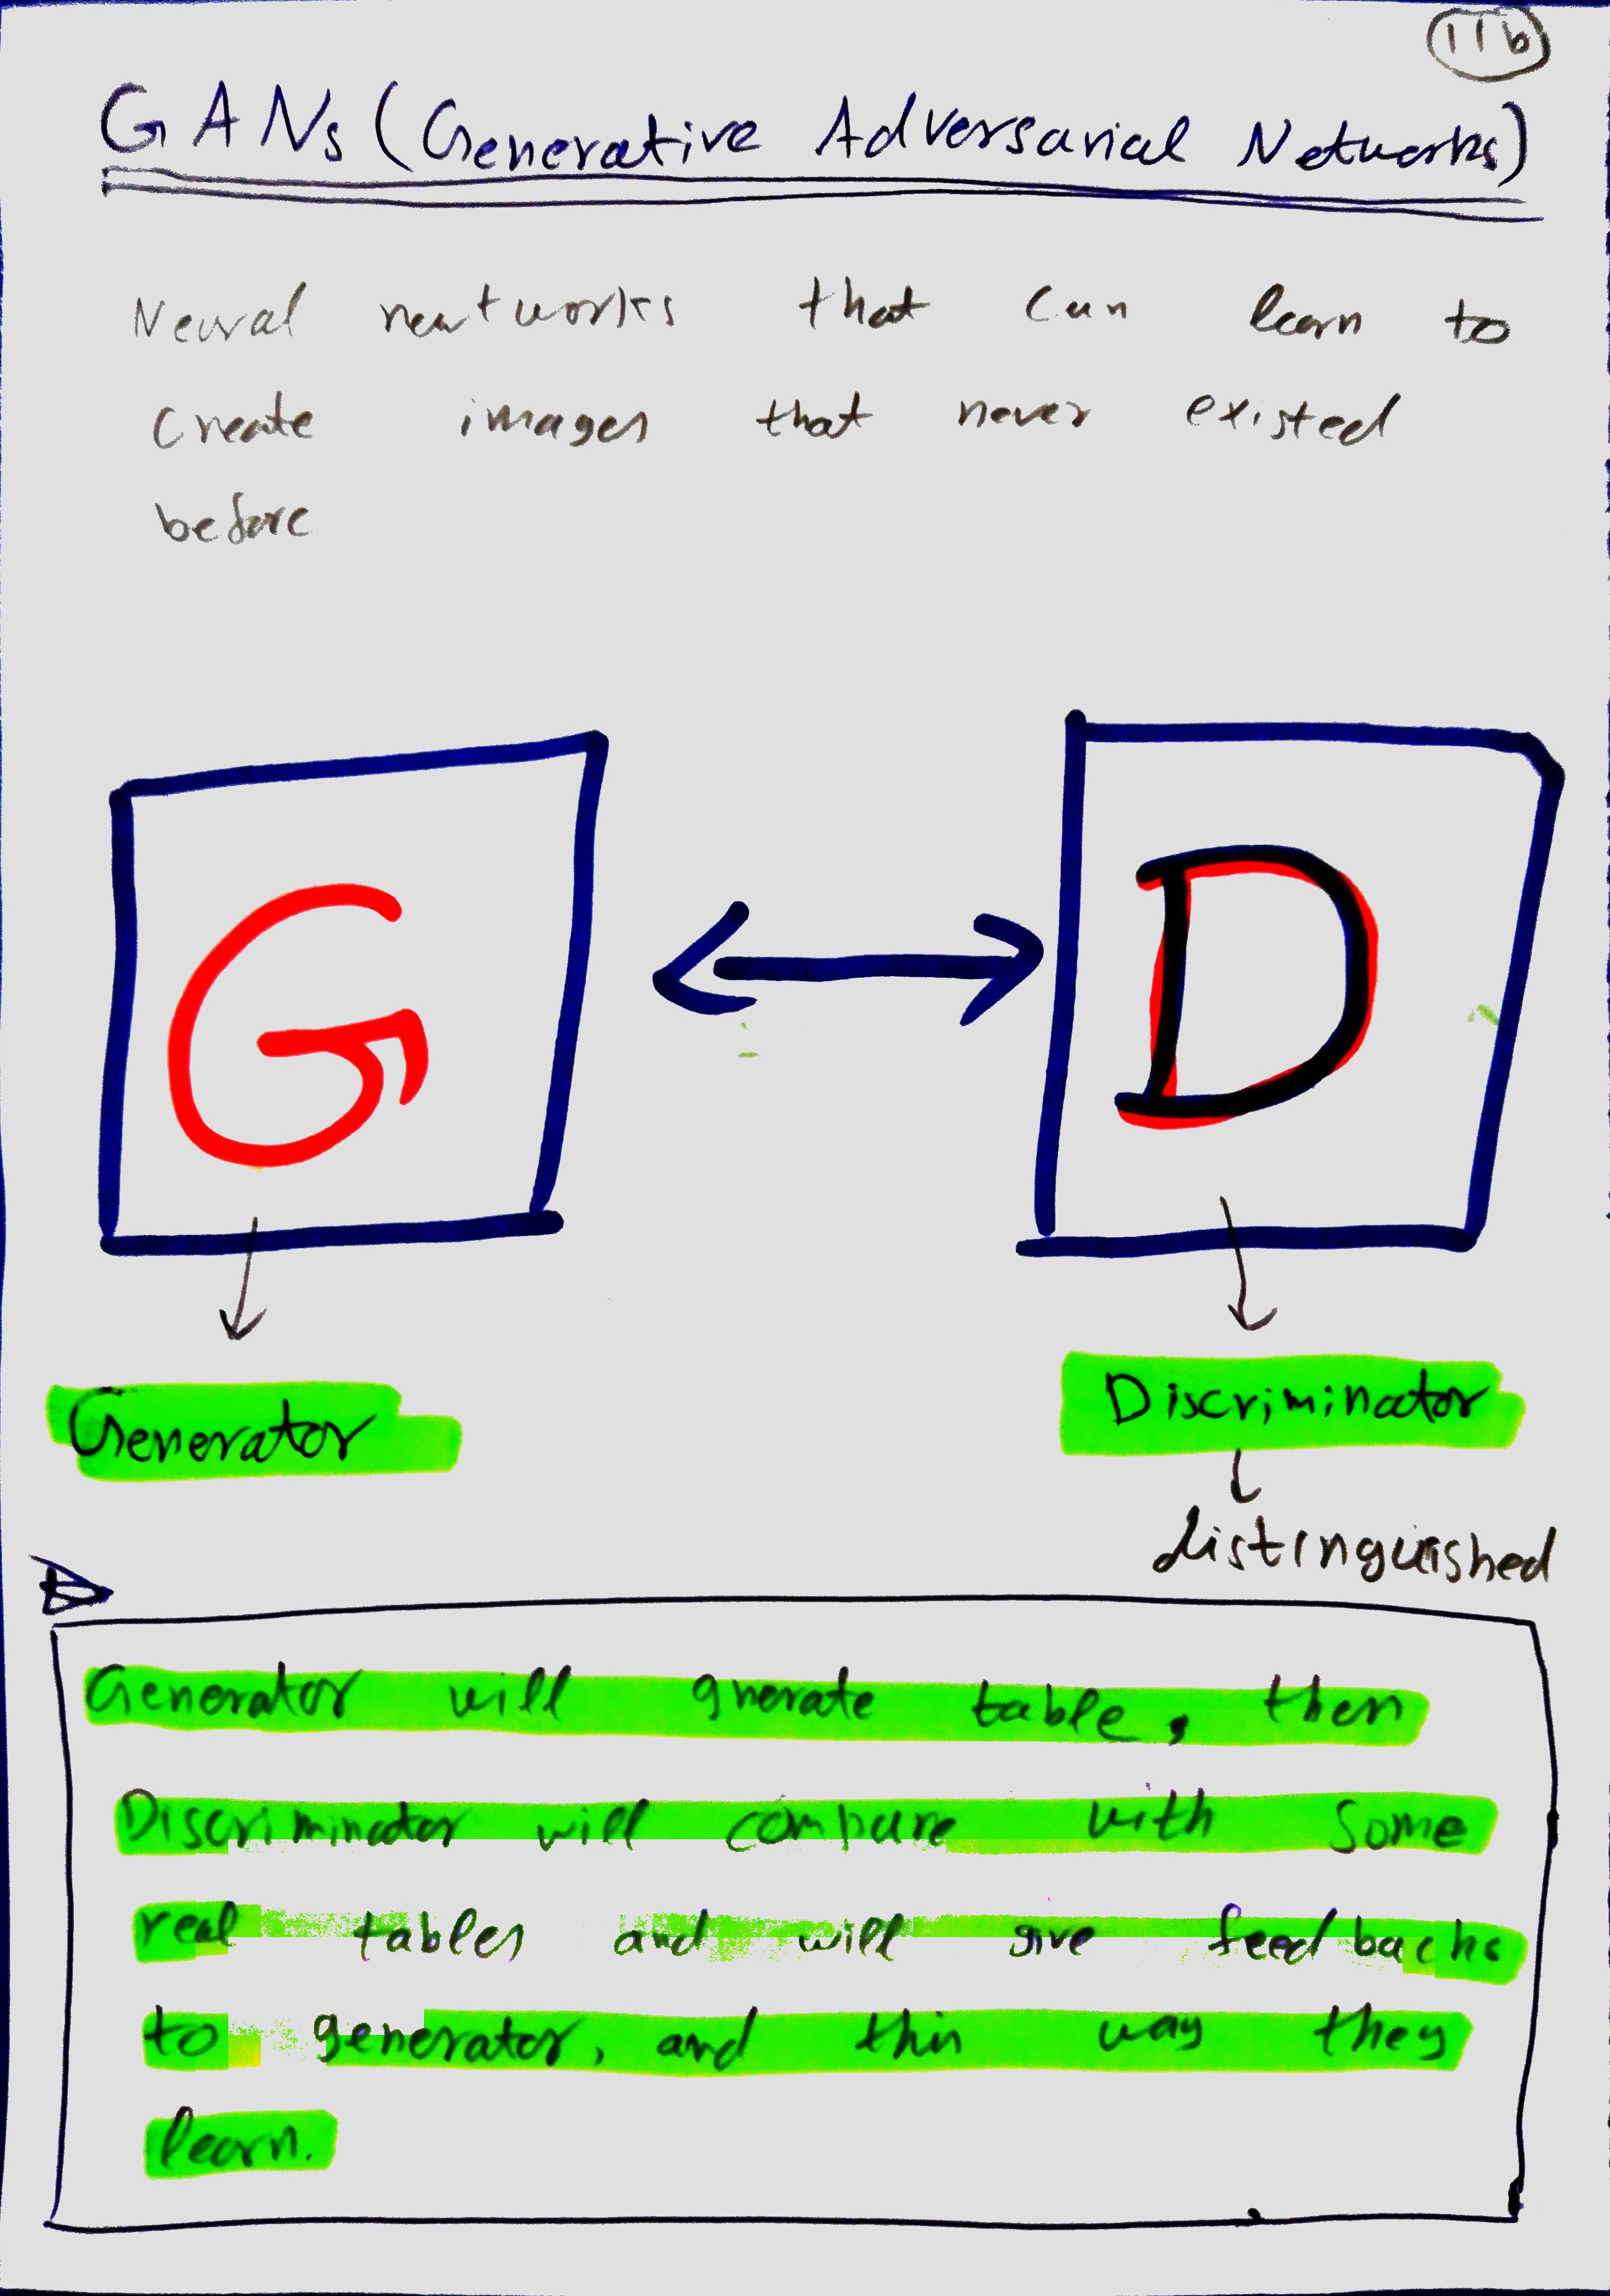 11b
GANs (Generative Adversarial Networks)
Neural neutworks that can learn to
create images that never existed
before
G
D
Generator
Discriminator
distinguished
Generator will gnerate table, then
Discriminator will compare with some
real tables and will give feedbacks
to generator, and this way they
learn.